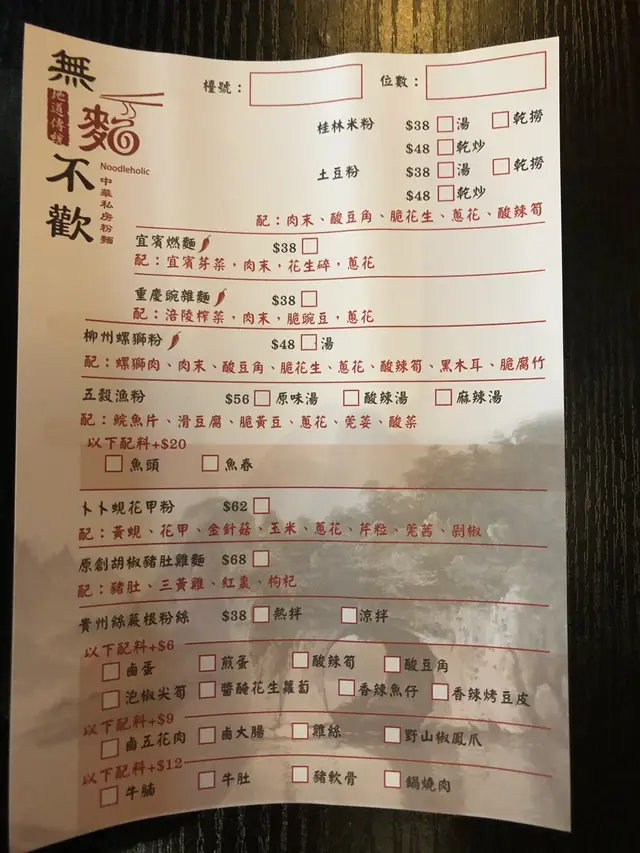 無麵不歡
地道傳統
Noodleholic
中華私房粉麵
檯號：
位數：
桂林米粉 $38 湯 乾撈
$48 乾炒
土豆粉 $38 湯 乾撈
$48 乾炒
配：肉末、酸豆角、脆花生、蔥花、酸辣筍
宜賓燃麵 $38
配：宜賓芽菜，肉末，花生碎，蔥花
重慶豌雜麵 $38
配：涪陵榨菜，肉末，脆豌豆，蔥花
柳州螺獅粉 $48 湯
配：螺獅肉、肉末、酸豆角、脆花生、蔥花、酸辣筍、黑木耳、脆腐竹
五穀漁粉 $56 原味湯 酸辣湯 麻辣湯
配：鯇魚片、滑豆腐、脆黃豆、蔥花、莞荽、酸菜
以下配料+$20
魚頭 魚春
卜卜蜆花甲粉 $62
配：黃蜆、花甲、金針菇、玉米、蔥花、芹粒、莞茜、剁椒
原創胡椒豬肚雞麵 $68
配：豬肚、三黃雞、紅棗、枸杞
貴州絲蕨根粉絲 $38 熱拌 涼拌
以下配料+$6
鹵蛋 煎蛋 酸辣筍 酸豆角
泡椒尖筍 醬醃花生蘿蔔 香辣魚仔 香辣烤豆皮
以下配料+$9
鹵五花肉 鹵大腸 雞絲 野山椒鳳爪
以下配料+$12
牛腩 牛肚 豬軟骨 鍋燒肉